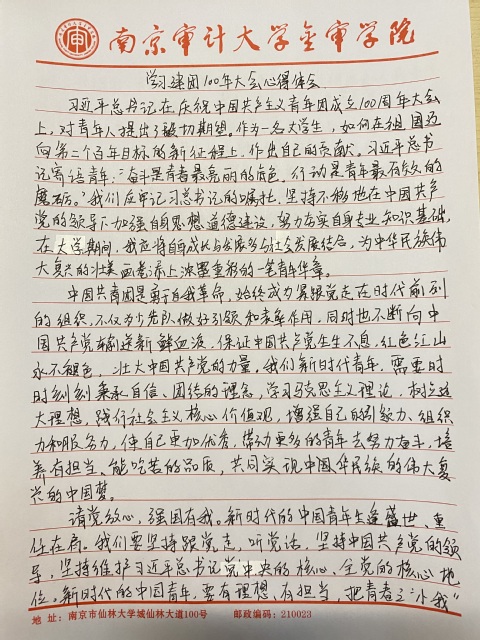 南京审计大学金审学院
学习建团100年大会心得体会
习近平总书记在庆祝中国共产主义青年团成立100周年大会
上,对青年人提出了殷切期望。作为一名大学生,如何在祖国迈
向第二个百年目标的新征程上,作出自己的贡献。习近平总书
记寄语青年:"奋斗是青春最亮丽的底色,行动是青年最有效的
磨砺。"我们应牢记习总书记的嘱托,坚持不移地在中国共产
党的领导下加强自身思想道德建设,努力夯实自身专业知识基础,
在大学期间,我应将自身成长与发展与社会发展结合,为中华民族伟
大复兴的壮美画卷添上浓墨重彩的一笔青年华章。
中国共青团是勇于自我革命,始终成为紧跟党走在时代前列
的组织,不仅为少先队做好引领和表率作用,同时也不断向中
国共产党输送新鲜血液,保证中国共产党生生不息,红色江山
永不褪色,壮大中国共产党的力量,我们新时代青年,需要时
时刻刻秉承自信、团结的理念,学习马克思主义理论,树立远
大理想,践行社会主义核心价值观,增强自己的引领力、组织
力和服务力,使自己更加优秀,带动更多的青年去努力奋斗,培
养有担当、能吃苦的品质,共同实现中国华民族的伟大复
兴的中国梦。
请党放心,强国有我。新时代的中国青年生逢盛世、重
任在肩。我们要坚持跟党走,听党话,坚持中国共产党的领
导,坚持维护习近平总书记党中央的核心、全党的核心地
位。新时代的中国青年,要有理想、有担当,把青春之"小我"
地 址:南京市仙林大学城仙林大道100号 邮政编码:210023